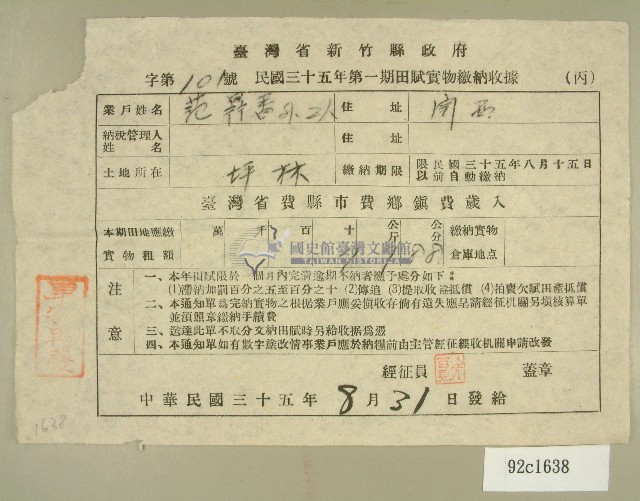 臺灣省新竹縣政府
字第101號 民國三十五年第一期田賦實物繳納收據 (丙)
業戶姓名 范 外2人 住址 関西
納稅管理人姓名 住址
土地所在 坪林 繳納期限 限民國三十五年八月十五日以前自動繳納
臺灣省費縣市費鄉鎭費歲入
本期田地應繳實物租額 萬 千 百 十 公斤 公 繳納實物倉庫地点
國史館臺灣文獻館
注意
一、本年田賦限於一個月內完清逾期不納者應予處分如下:
(1)滯納加罰百分之五至百分之十 (2)傳追 (3)提取收益抵償 (4)拍賣欠賦田產抵償
二、本通知單爲完納實物之根據業戶應妥愼收存倘有遺失應呈請經征机關另填核算單
並須照章繳納手續費
三、送達此單不取分文納田賦時另給收据爲憑
四、本通知單如有數字塗改情事業戶應於納糧前由主管經征經收机關申請改發
經征員 蓋章
中華民國三十五年 8月31日發給
1638
92c1638